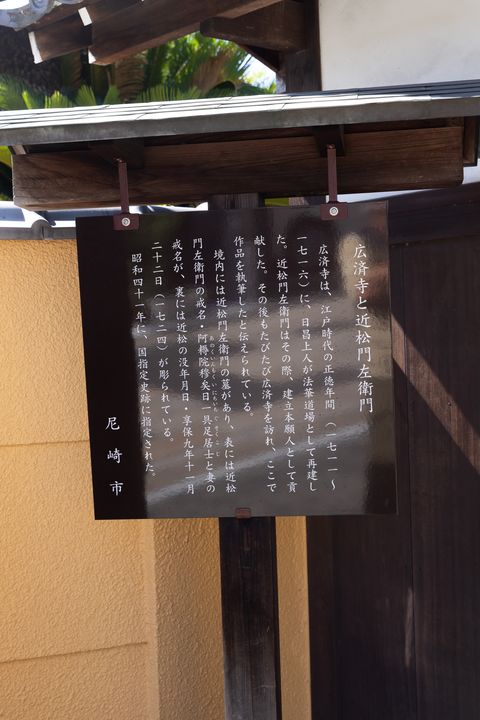 広済寺と近松門左衛門
広済寺は、江戸時代の正徳年間（一七一一～
一七一六）に、日昌上人が法華道場として再建し
た。近松門左衛門はその際、建立本願人として貢
献した。その後もたびたび広済寺を訪れ、ここで
作品を執筆したと伝えられている。
境内には近松門左衛門の墓があり、表には近松
門左衛門の戒名・阿耨院穆矣日一具足居士と妻の
戒名が、裏には近松の没年月日・享保九年十一月
二十二日（一七二四）が彫られている。
昭和四十一年に、国指定史跡に指定された。
尼崎市